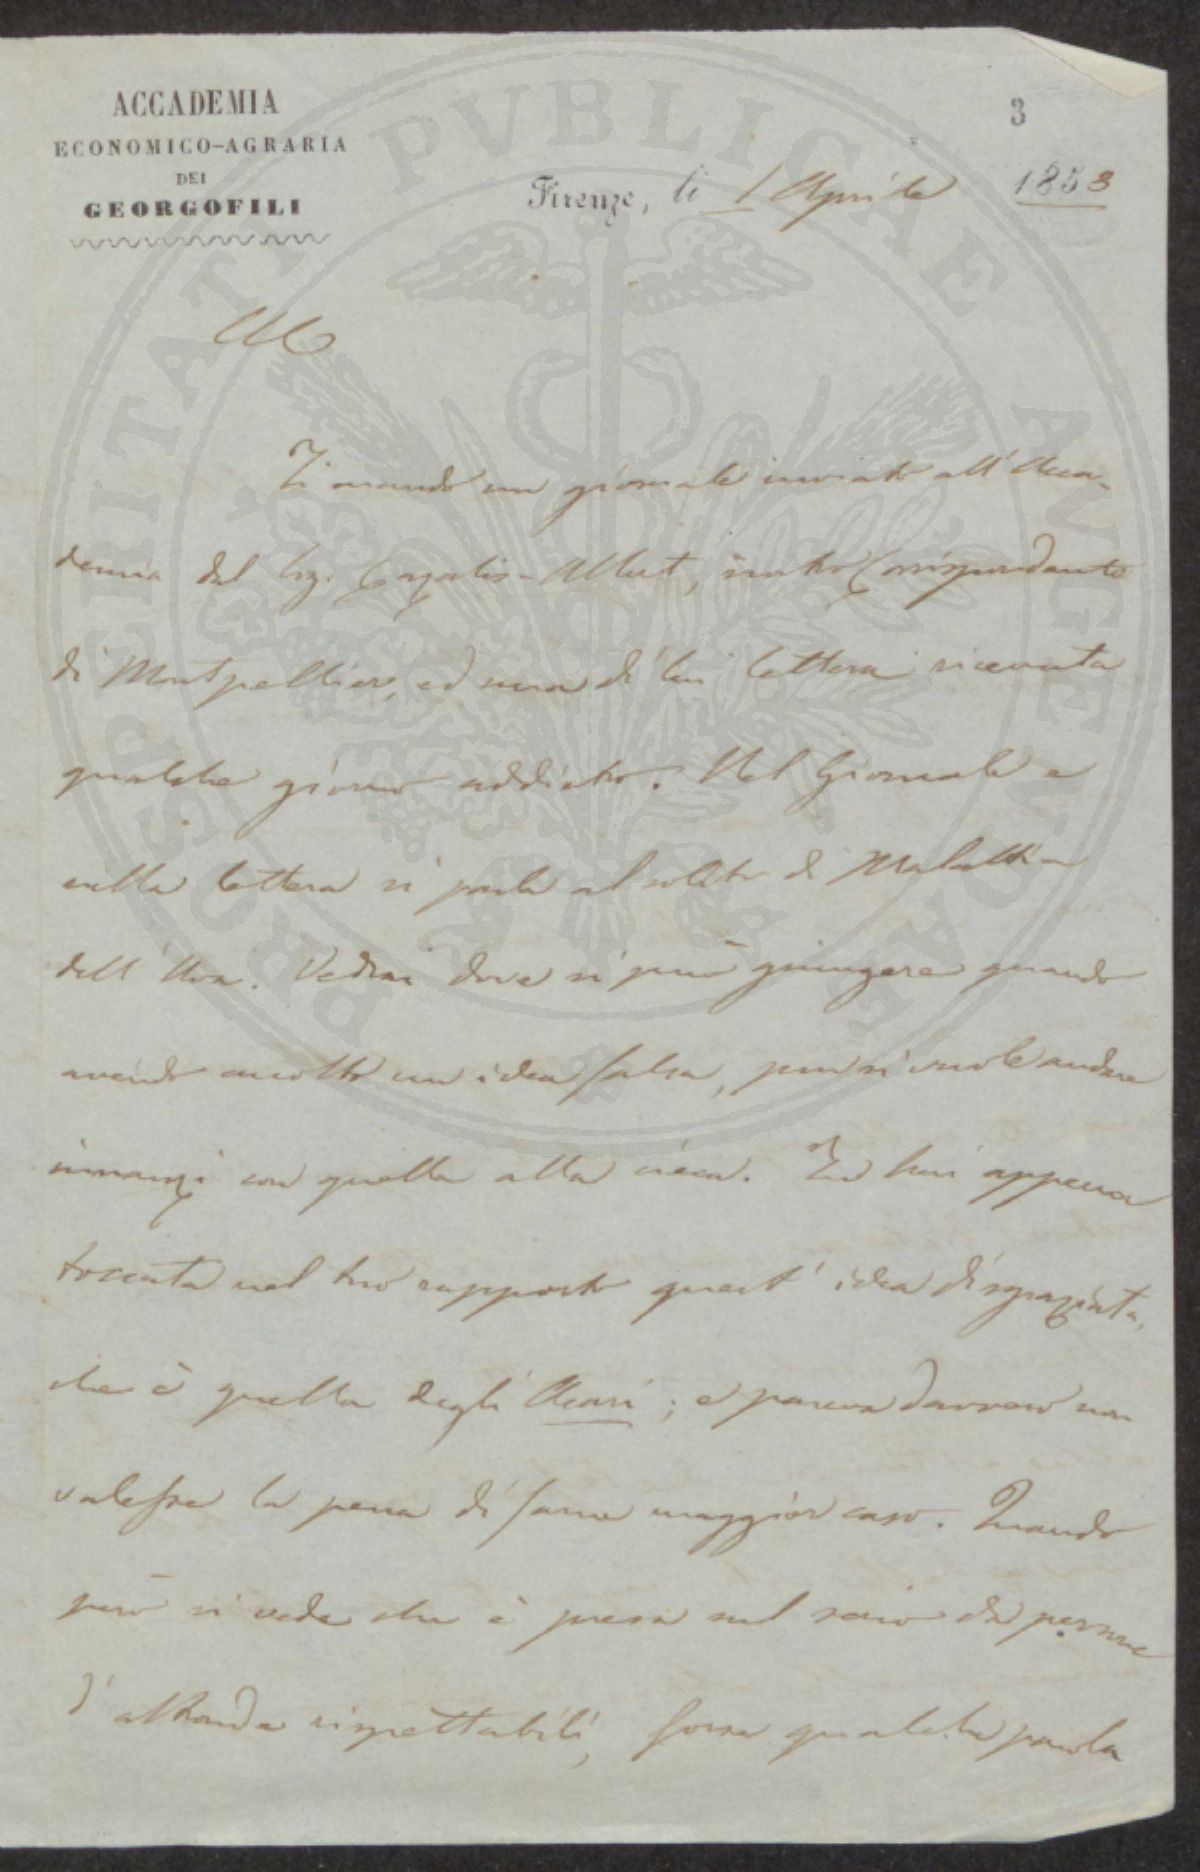 3
ACCADEMIA
ECONOMICO-AGRARIA
DEI
GEORGOFILI
Firenze, li 1 Aprile 1853
PROSPERITATI PVBLICAE AVGENDAE
Ti mando un giornale inviato all'Acca-
demia dal Sig. Cazalis-Allut, nostro Corrispondente
di Montpellier, ed una di lui lettera ricevuta
qualche giorno addietro. Nel Giornale e
nella lettera si parla al solito di Malattia
dell'Uva. Vedrai dove si può giungere quando
avendo accolto un idea falsa, pur si vuole andare
innanzi con quella alla cieca. Tu hai appena
toccata nel tuo rapporto quest'idea disgraziata,
che è quella degli Acari; e pareva davvero non
valesse la pena di farne maggior caso. Quando
però si vede che è presa sul serio da persone
d'altronde rispettabili, forse qualche parola